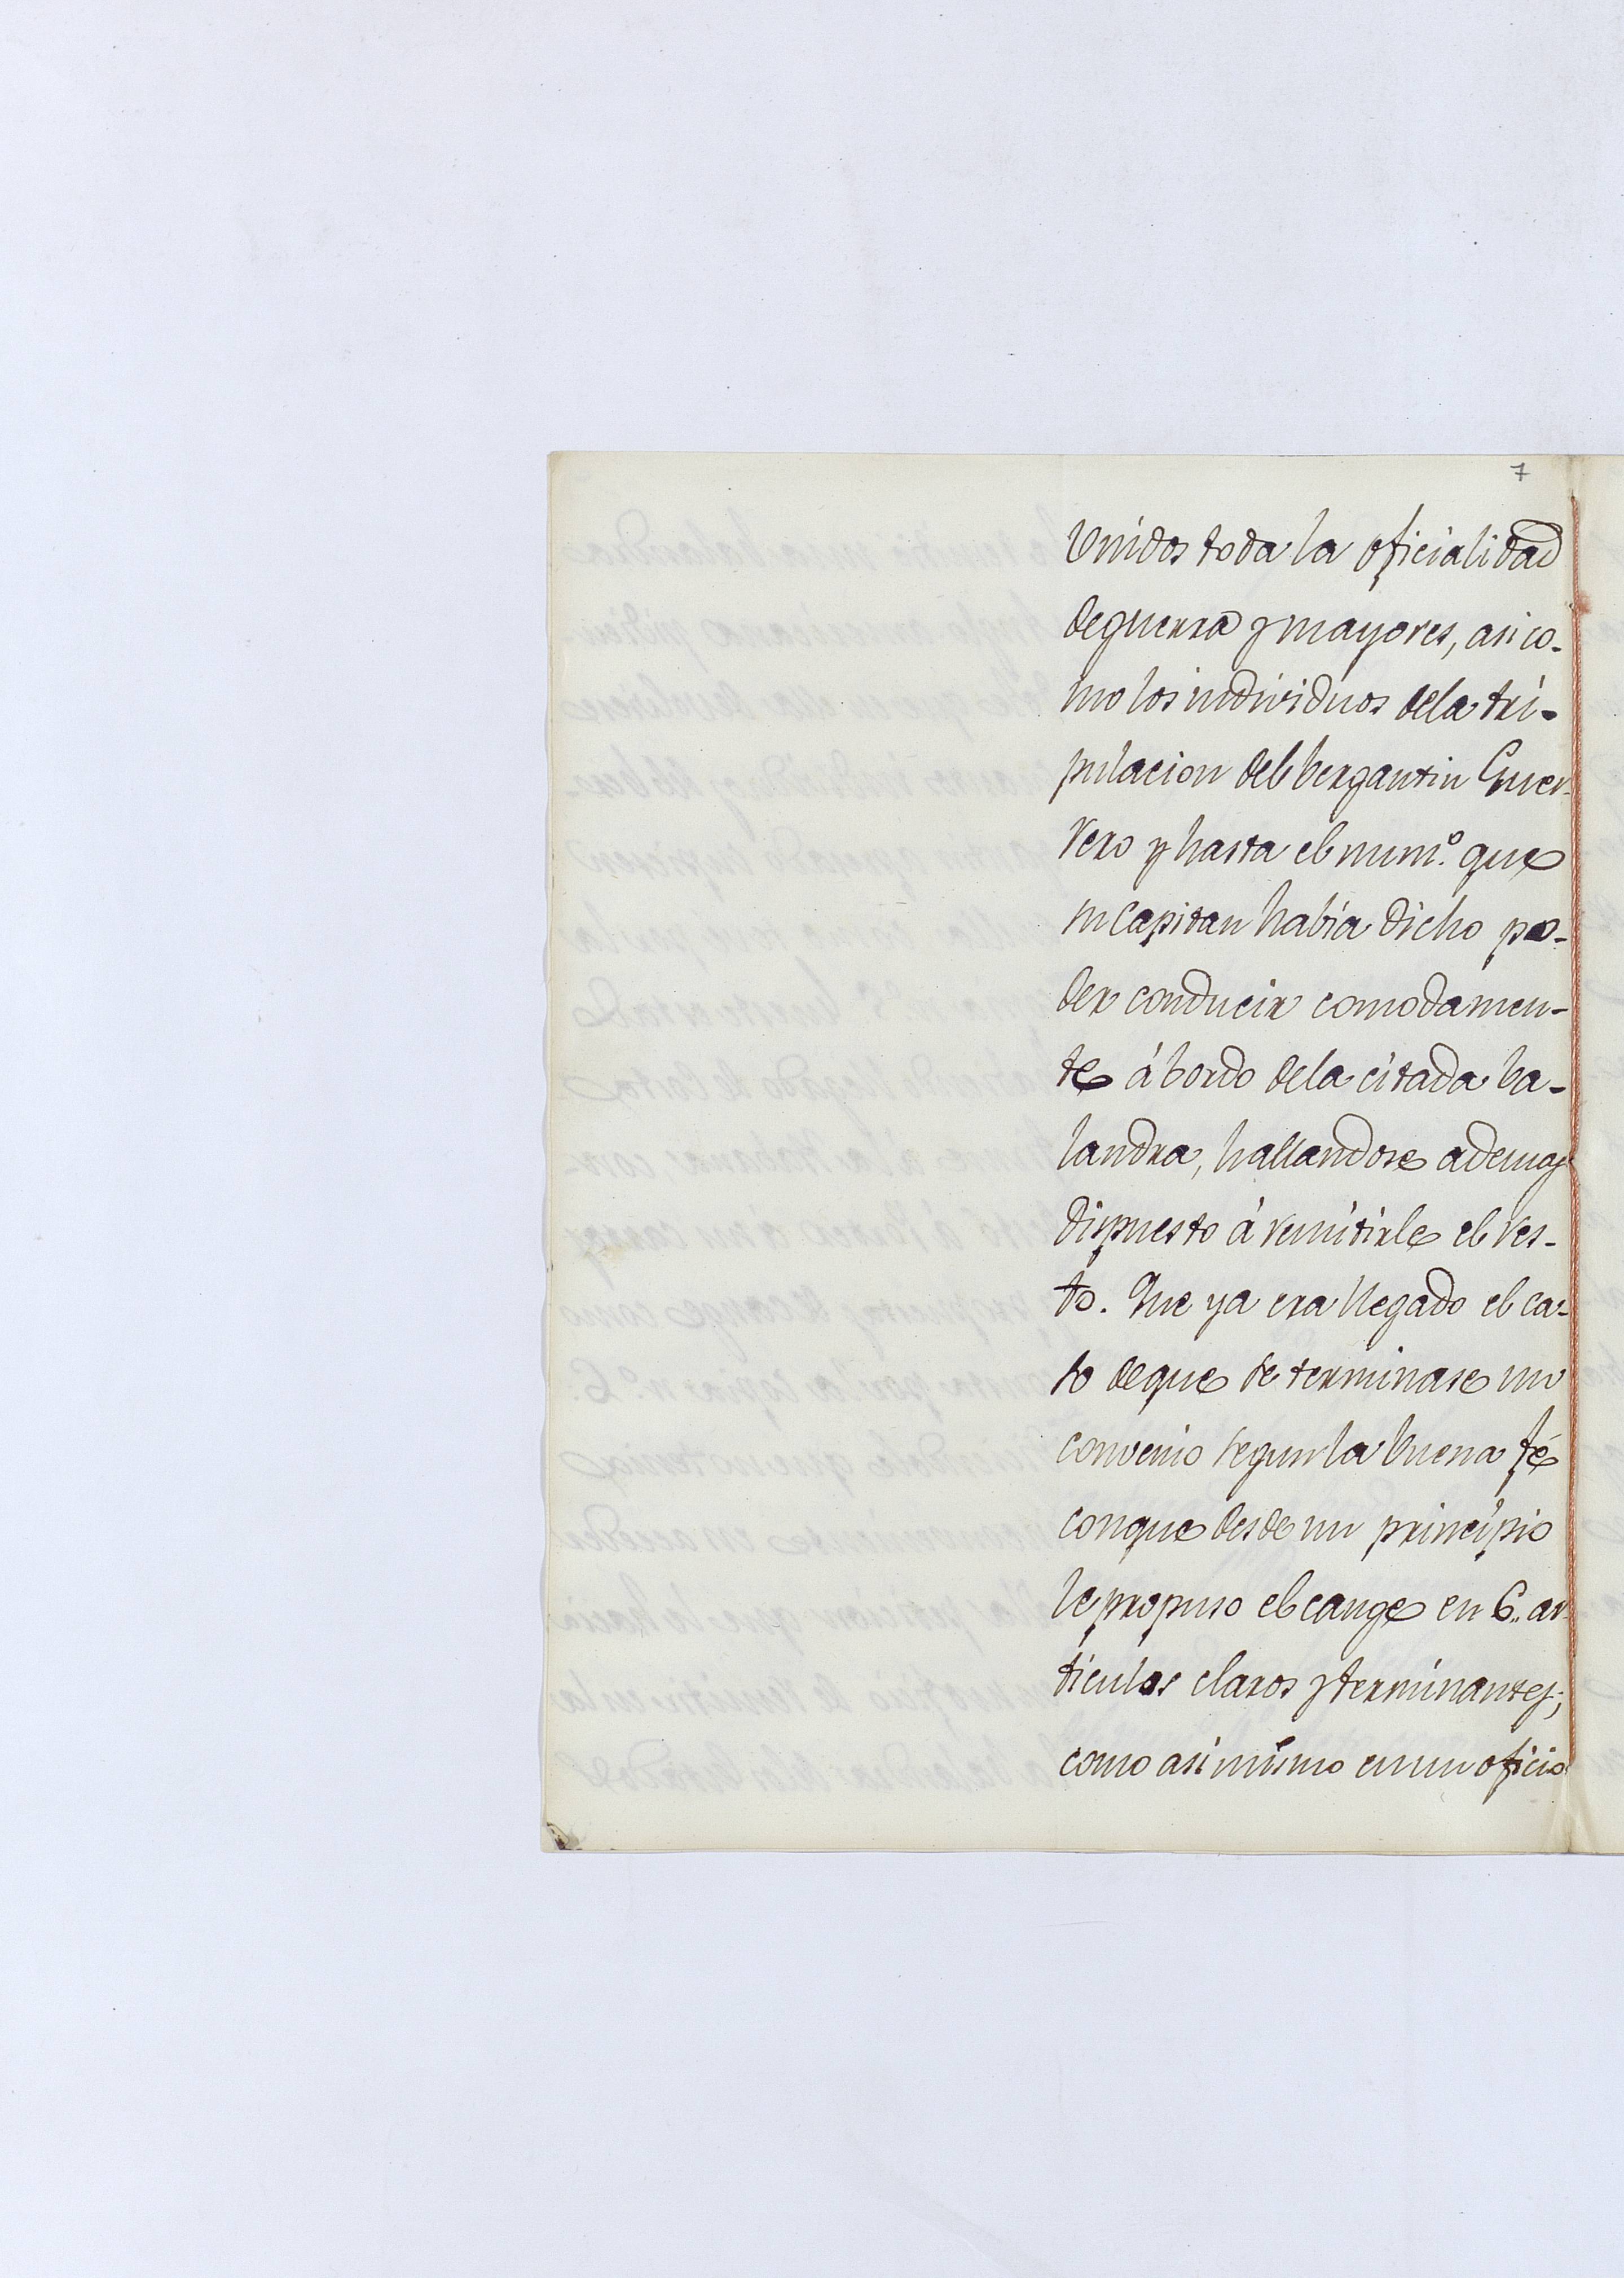 7
Unidos toda la oficialidad
de guerra y mayores, asi co-
mo los individuos de la tri-
pulacion del bergantin Guer-
rero y hasta el num.º que
su Capitan habia dicho po-
der conducir comodamen-
te á bordo de la citada ba-
landra, hallandose ademas
dispuesto á remitirle el res-
to. Que ya era llegado el ca-
so de que se terminase un
convenio segun la buena fé
con que desde un principio
le propuso el cange en 6,, ar-
ticulos claros y terminantes;
como asi mismo en un oficio